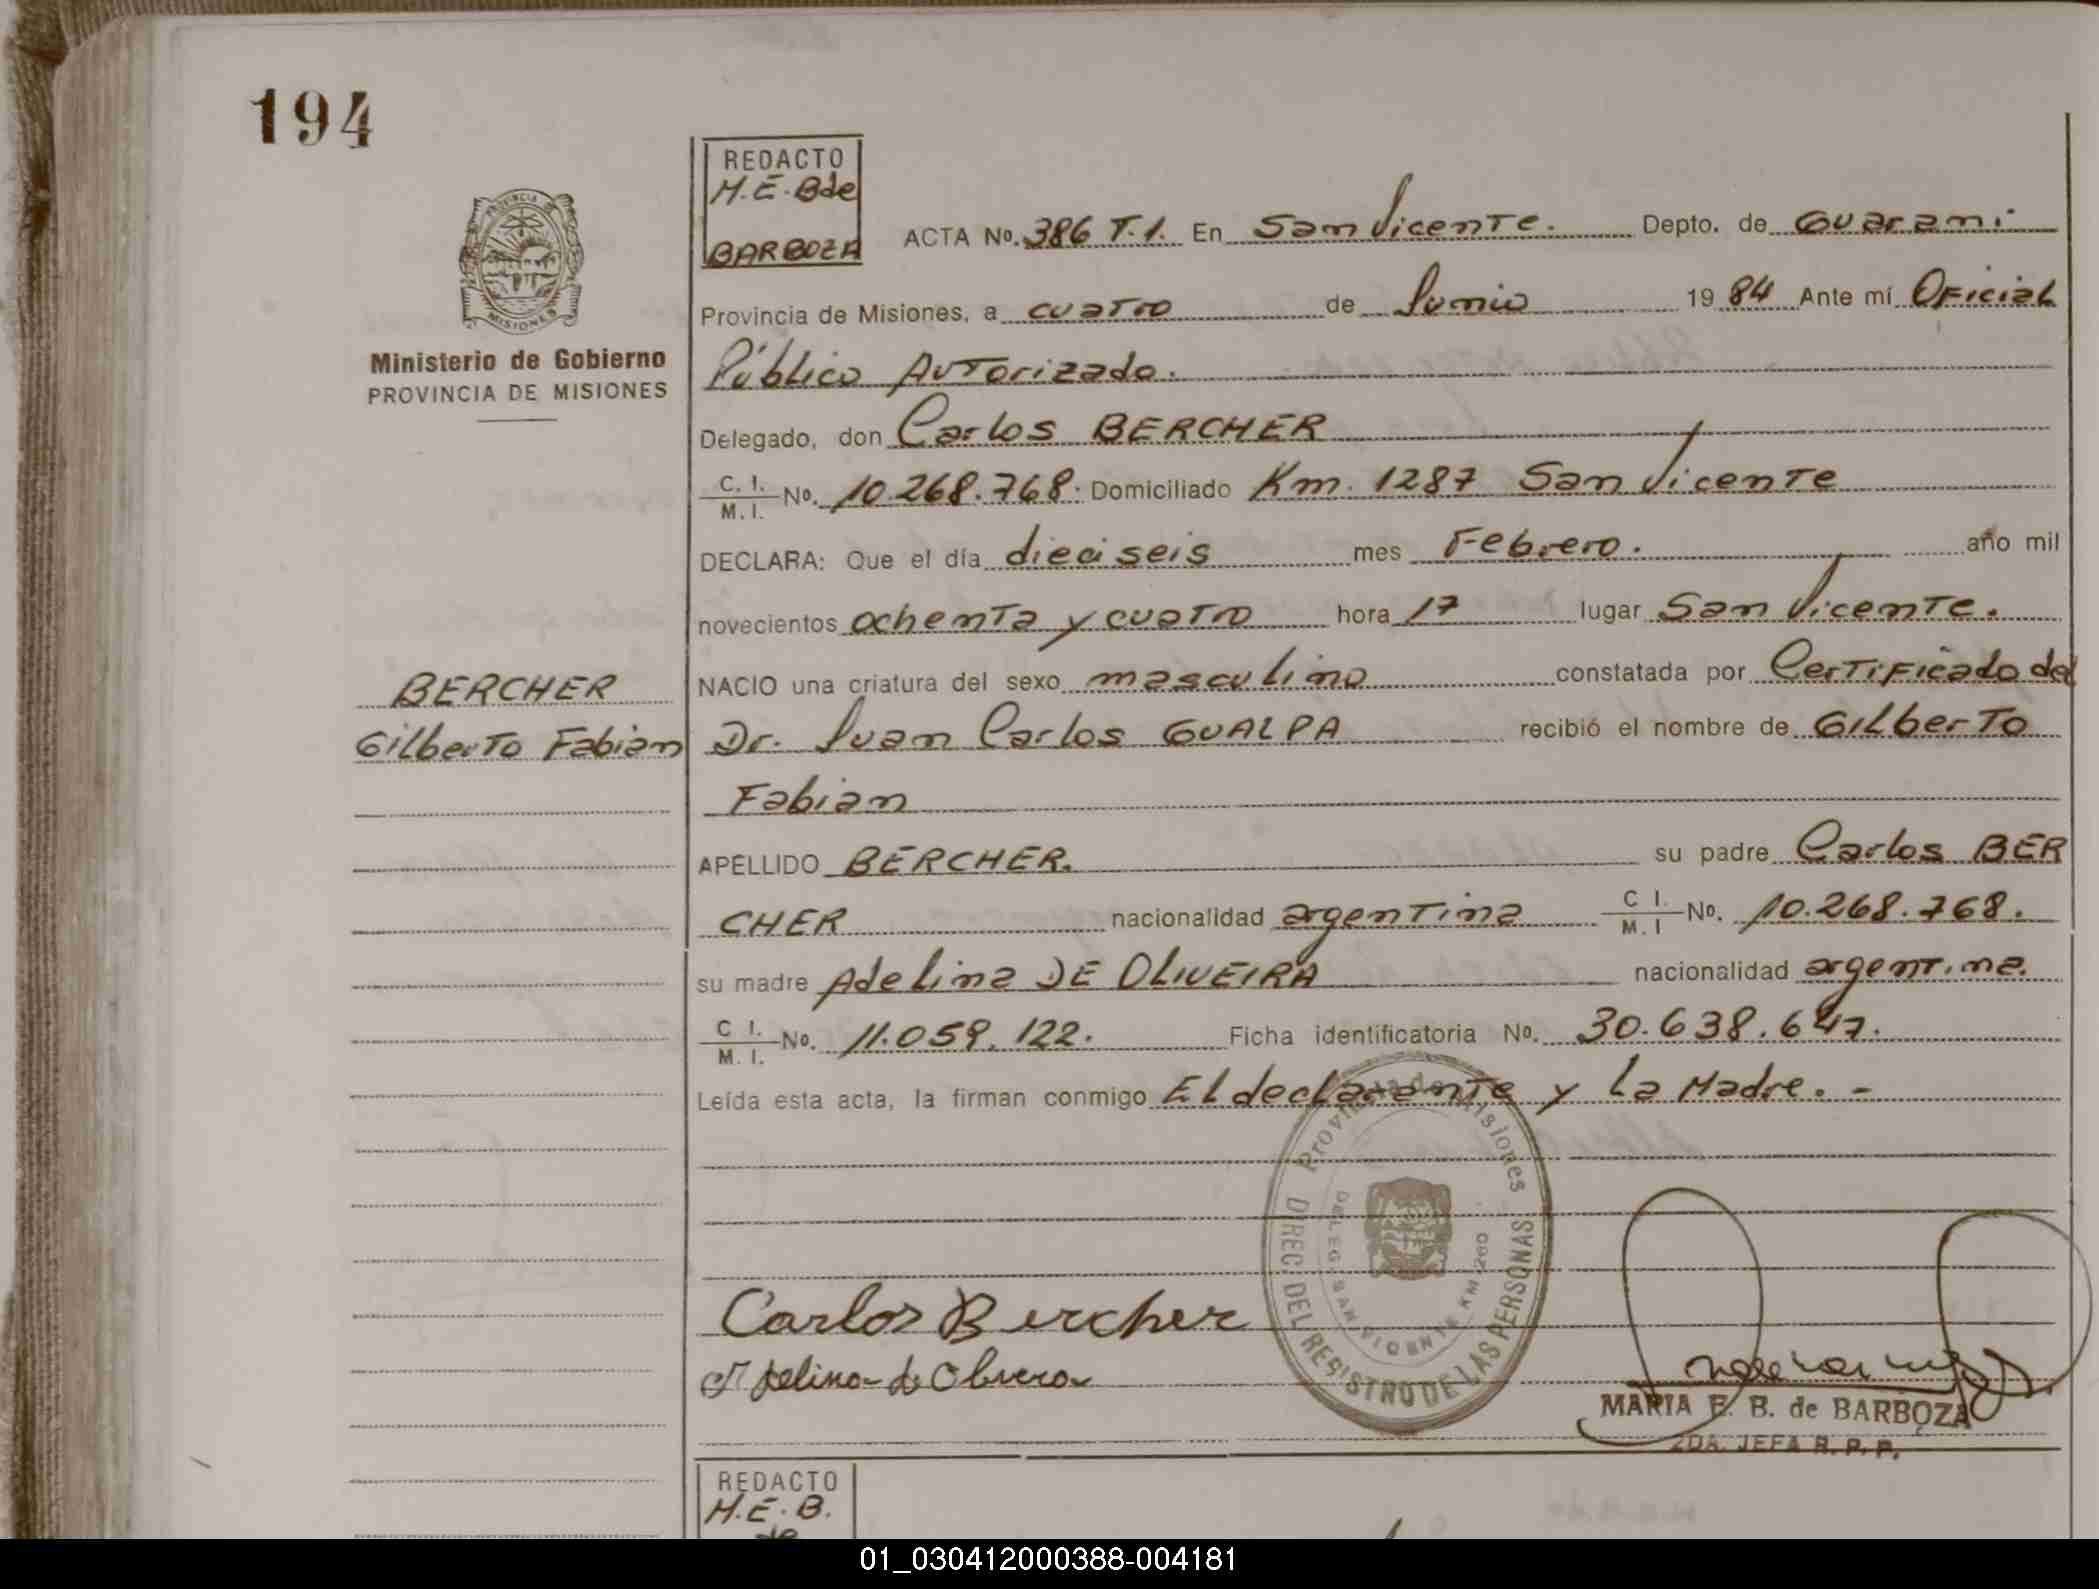 194
PROVINCIA DE
MISIONES
Ministerio de Gobierno
PROVINCIA DE MISIONES
REDACTO
M.E.Bde
BARBOZA
ACTA No. 386 T.1. En San Vicente. Depto. de Guarani
Provincia de Misiones, a cuatro de Junio 1984 Ante mí Oficial
Público Autorizado.
Delegado, don Carlos BERCHER
C. I. / M. I. No. 10.268.768. Domiciliado Km. 1287 San Vicente
DECLARA: Que el día dieciseis mes Febrero. año mil
novecientos ochenta y cuatro hora 17 lugar San Vicente.
BERCHER
Gilberto Fabian
NACIO una criatura del sexo masculino constatada por Certificado del
Dr. Juan Carlos GUALPA recibió el nombre de GILberTO
Fabian
APELLIDO BERCHER. su padre Carlos BER
CHER nacionalidad argentina C I. / M. I No. 10.268.768.
su madre Adelina DE OLIVEIRA nacionalidad argentina.
C I. / M. I. No. 11.059.122. Ficha identificatoria No. 30.638.647.
Leída esta acta, la firman conmigo El declarante y La Madre. -
Provincia de Misiones
DIREC. DEL REGISTRO DE LAS PERSONAS
DELEG. SAN VICENTE KM 260
Carlos Bercher
Adelina de
MARIA E. B. de BARBOZA
2DA. JEFA R. P. P.
REDACTO
M.E.B.
de
01_030412000388-004181